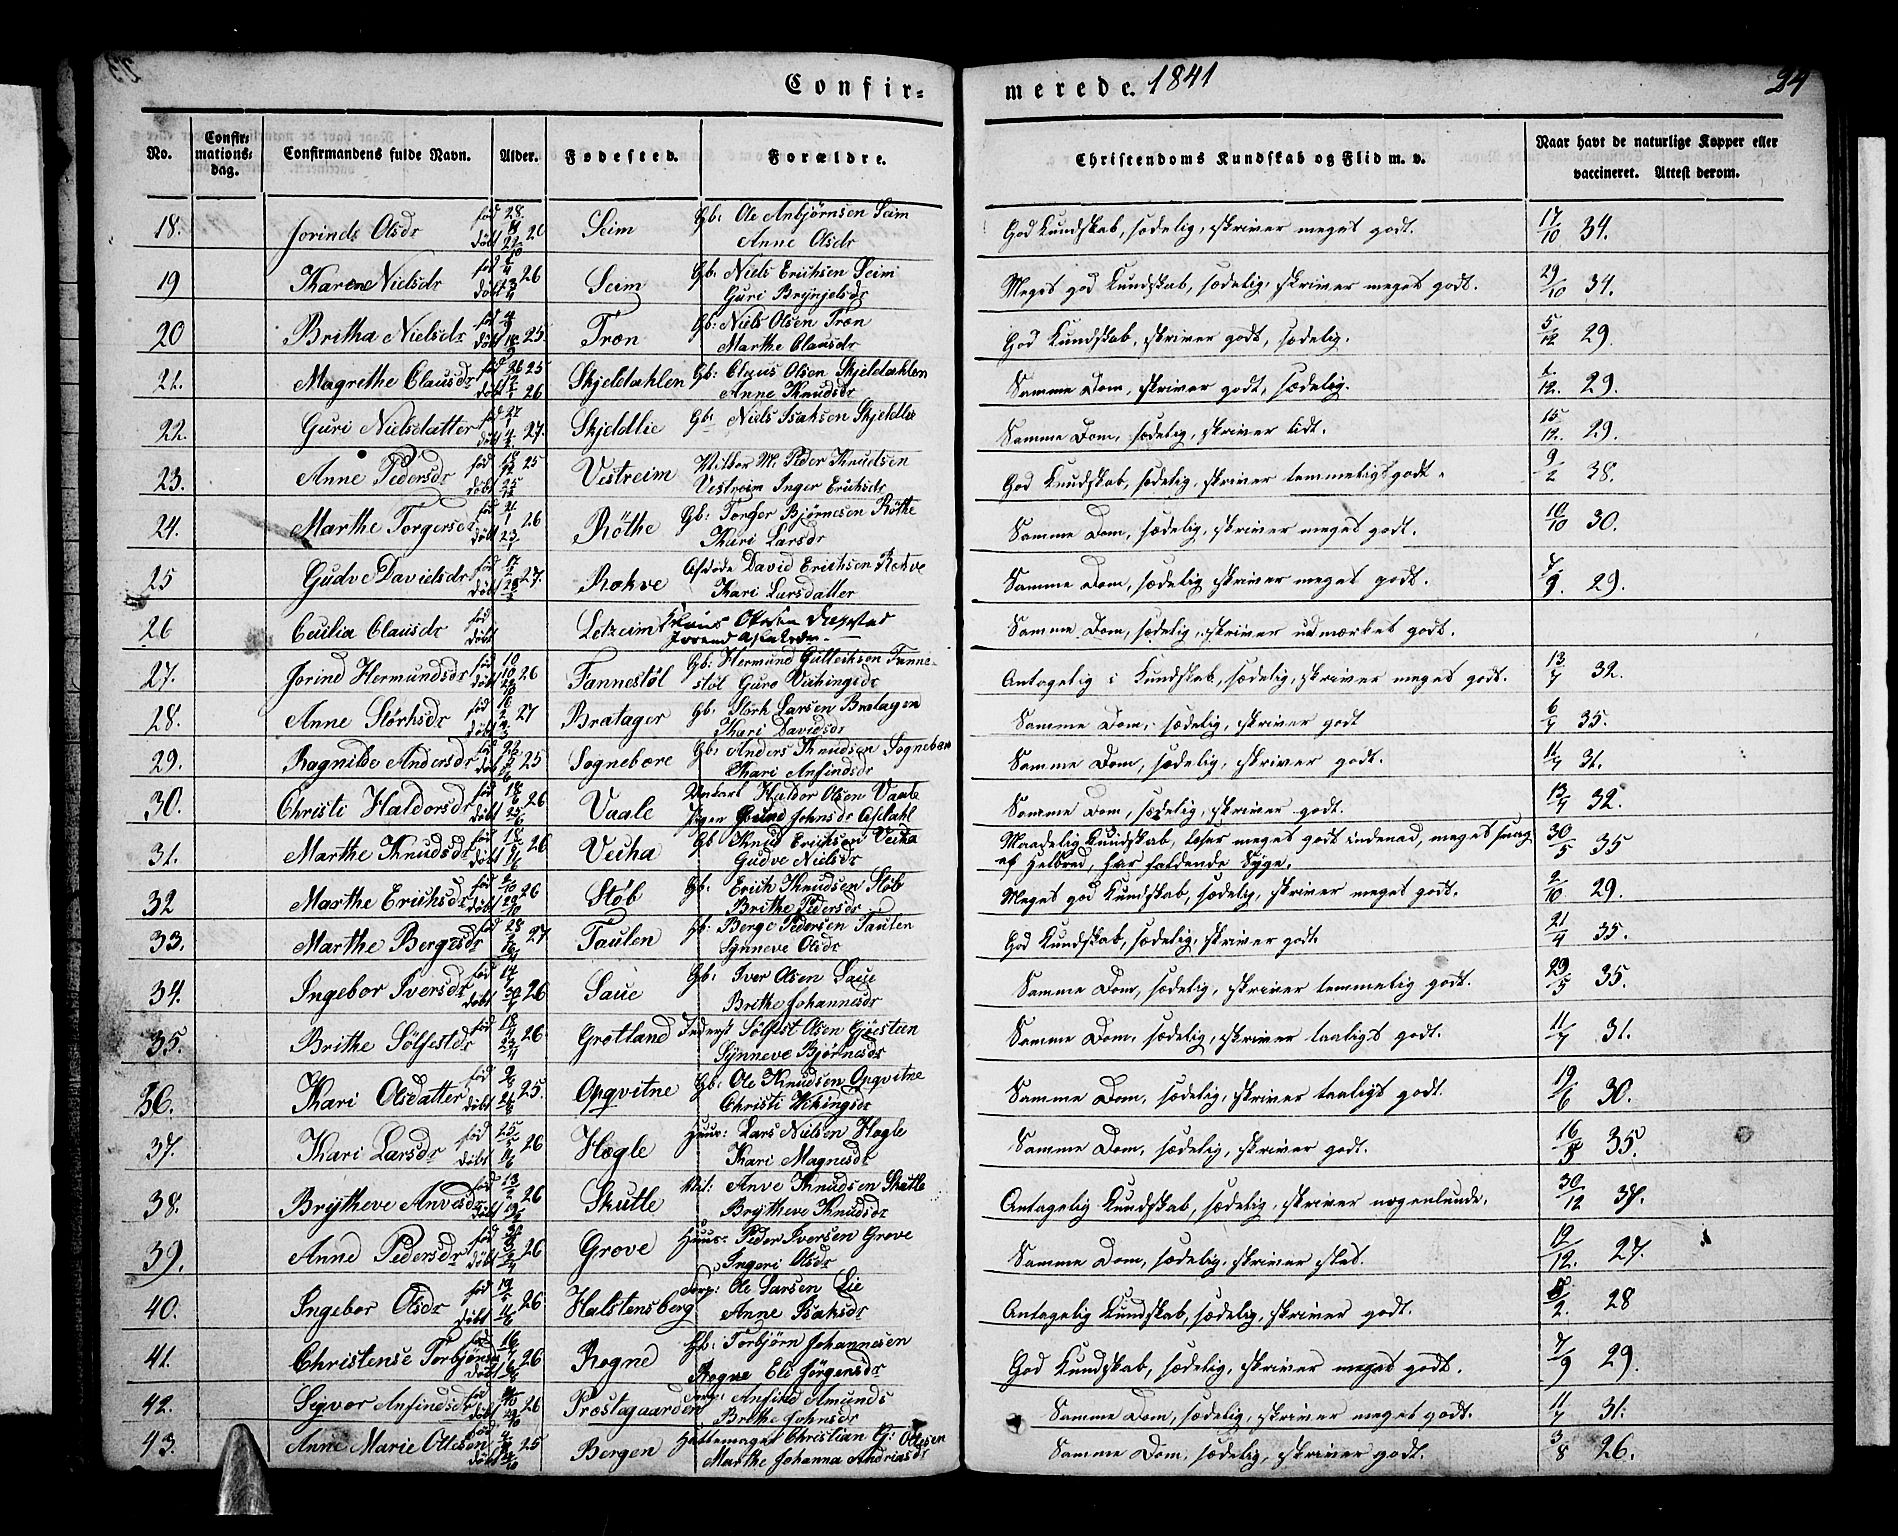 Confir-
merede. 1841
24
No.
Confir-
mations-
dag.
Confirmandens fulde Navn.
Alder.
Fødested.
Forældre.
Christendoms Kundskab og Flid m. v.
Naar havt de naturlige Kopper eller
vaccineret. Attest derom.
18. Jorinde Olsdr født 28/8 døbt 22/10 26 Seim Gb: Ole Anbjørnsen Seim
Anne Olsdr
God Kundskab, sædelig, skriver meget godt. 17/10 34.
19 Karen Nielsdr født døbt 26 Seim Gb: Niels Erichsen Seim
Guri Brynjelsdr
Meget god Kundskab, sædelig, skriver meget godt. 29/10 34.
20 Britha Nielsdr født døbt 25. Træn Gb: Niels Olsen Træn
Marthe Clausdr
God Kundskab, skriver godt, sædelig. 5/12 29.
21. Magrethe Clausdr født 26/12 25 døbt 26 Skjeldahlen Gb: Claus Olsen Skjeldahlen
Anne Knudsdr
Samme Dom, skriver godt, sædelig. 1/12. 29.
22. Guri Nielsdatter født 27/1 døbt 4/2 27. Skjeldlie Gb: Niels Isaksen Skjeldlie
Samme Dom, sædelig, skriver lidt. 15/12. 29.
23. Anne Pedersdr født 18/12 døbt 25/12 25 Vestreim Peder Knudsen
Vestreim Inger Erichsdr
God Kundskab, sædelig, skriver temmeligt godt. 9/2 38.
24. Marthe Torgersdr født 21/1 døbt 23/1 26 Røthe Gb: Torger Bjørnesen Røthe
Kari Larsdr
Samme Dom, sædelig, skriver meget godt. 10/10 30.
25 Gudve Davidsdr født 17/2 døbt 28/2 27. Rokve Afdøde David Erichsen Rokve
Kari Larsdatter
Samme Dom, sædelig, skriver meget godt. 7/9. 29.
26 Cecilia Clausdr født døbt Lezreim
Samme Dom, sædelig, skriver udmærket godt.
27. Jorind Hermundsdr født 10/10 døbt 26 Fannestøl Gb: Hermund Gulleichsen Fanne-
støl Guro Vichingsdr
Antagelig i Kundskab, sædelig, skriver meget godt. 13/7 32.
28. Anne Størksdr født 16/2 døbt 27 Bratager Gb: Størk Larsen Bratagen
Kari Davidsdr
Samme Dom, sædelig, skriver godt 6/7 35.
29. Ragnilde Andersdr født døbt 25 Sognebore Gb: Anders Knudsen Sognebore
Kari Anfindsdr
Samme Dom, sædelig, skriver godt. 11/7 31.
30. Christi Haldorsdr født 18/6 døbt 25/6 26 Vaale Unkarl Haldor Olsen Vaale
Pigen Jorind Johnsdr Afdahl
Samme Dom, sædelig, skriver godt. 13/7 32.
31. Marthe Knudsdr født døbt 26 Vecha Gb Knud Erichsen Vecha
Gudve Nielsdr
Maadelig Kundskab, læser meget godt indenad, meget svag
af Helbred, har faldende Syge. 30/5 35
32 Marthe Erichsdr født døbt 26 Støb Gb: Erich Knudsen Støb
Brithe Pedersdr
Meget god Kundskab, sædelig, skriver meget godt. 2/10 29.
33. Marthe Bergesdr født 28/2 døbt 27 Taulen Gb: Berge Pedersen Taulen
Synneve Olsdr
God Kundskab, sædelig, skriver godt. 21/4 35.
34. Ingebor Iversdr født døbt 26 Saue Gb: Iver Olsen Saue
Brithe Johannesdr
Samme Dom, sædelig, skriver temmelig godt. 29/5 35.
35. Brithe Sølfestdr født 18/4 døbt 23/4 26. Grotland Inderst Sølfest Olsen Gjestein
Synneve Bjørnesdr
Samme Dom, sædelig, skriver taaligt godt. 11/7 31.
36. Kari Olsdatter født døbt 25. Opqvitne Gb: Ole Knudsen Opqvitne
Christi Vikingsdr
Samme Dom, sædelig, skriver taaligt godt. 19/6 30.
37. Kari Larsdr født 25/5 døbt 26 Hægle Huus: Lars Nielsen Hægle
Kari Magnesdr
Samme Dom, sædelig, skriver godt. 16/5 35.
38. Brytheve Anvesdr født 13/2 døbt 19/2 26 Skutle Anve Knudsen Skutle
Brytheve Knudsdr
Antagelig Kundskab, sædelig, skriver nogenlunde. 30/12 37.
39. Anne Pedersdr født døbt 26 Grove Huus: Peder Iversen Grove
Ingeri Olsdr
Samme Dom, sædelig, skriver slet. 12/12. 27.
40. Ingebor Olsdr født døbt 26 Halstensberg Serg: Ole Larsen Lie
Anne Isaksdr
Antagelig Kundskab, sædelig, skriver godt. 8/2. 28
41. Christense Torbjørnsdr født 16/7 døbt 26 Rogne Gb: Torbjørn Johannesen
Rogne Eli Jørgensdr
God Kundskab, sædelig, skriver meget godt. 7/9 29.
42. Sigvor Anfindsdr født døbt 26 Prestegaarden Serg: Anfind Amunds
Brithe Johnsdr
Samme Dom, sædelig, skriver meget godt. 11/7 31.
43. Anne Marie Ottesen født døbt 25 Bergen Hattemager Christian G: Ottesen
Marthe Johanna Andriasdr
Samme Dom, sædelig, skriver godt. 3/8 26.